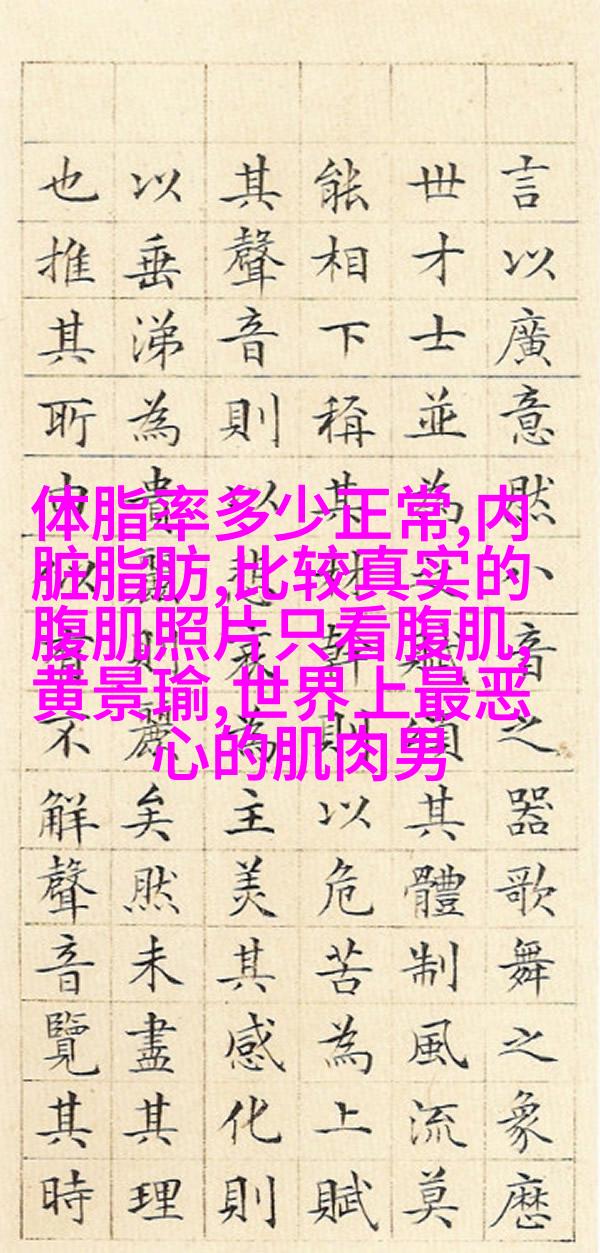 言以廣意然八音之器歌舞之象歷
世才士並為之賦頌其體制風流莫
能相下稱其材幹則以危苦為上賦
其聲音則以悲哀為主美其感化則
以垂涕為貴麗則麗矣然未盡其理
也推其所由似不解聲音覽其時
体脂率多少正常,内
脏脂肪,比较真实的
腹肌照片只看腹肌,
黄景瑜,世界上最恶
心的肌肉男